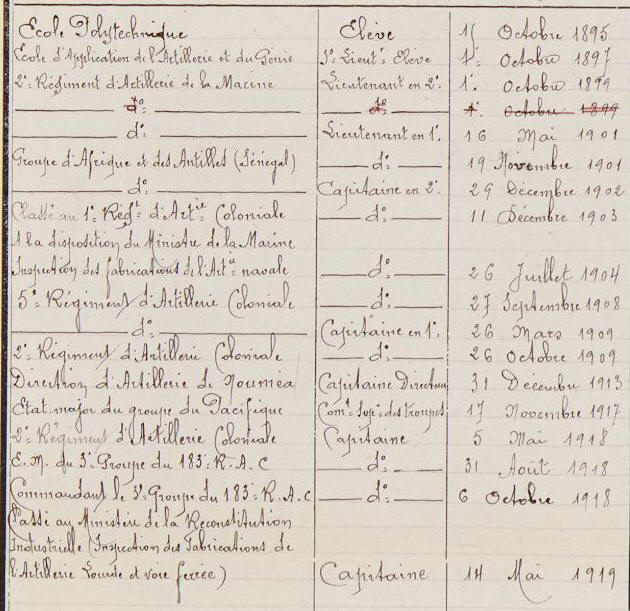 Ecole Polytechnique Elève 1( Octobre 1895
Ecole d'Application de l'Artillerie et du Génie 1º: Lieutt: Elève 1º: Octobre 1897
2º: Régiment d'Artillerie de la Marine Lieutenant en 2º: 1º: Octobre 1899
dº: dº: 1º: Octobre 1899
dº: Lieutenant en 1º: 16 Mai 1901
Groupe d'Afrique et des Antilles (Sénégal) dº: 19 Novembre 1901
dº: Capitaine en 2º: 29 Décembre 1902
Classé au 1º: Régt: d'Artie: Coloniale dº: 11 Décembre 1903
A la disposition du Ministre de la Marine
Inspection des fabrications de l'Artie navale dº: 26 Juillet 1904
5º: Régiment d'Artillerie Coloniale dº: 27 Septembre 1908
dº: Capitaine en 1º: 26 Mars 1909
2º: Régiment d'Artillerie Coloniale dº: 26 Octobre 1909
Direction d'Artillerie de Nouméa Capitaine Directeur 31 Decembre 1913
Etat-major du groupe du Pacifique Comt Supr: des troupes 17 Novembre 1917
2º: Régiment d'Artillerie Coloniale Capitaine 5 Mai 1918
E. M. du 3º: Groupe du 183º: R. A. C dº: 31 Août 1918
Commandant le 3º: Groupe du 183º: R. A. C dº: 6 Octobre 1918
Passé au Ministère de la Reconstitution
Industrielle (Inspection des Fabrications de
l'Artillerie Lourde et voie ferrée) Capitaine 14 Mai 1919